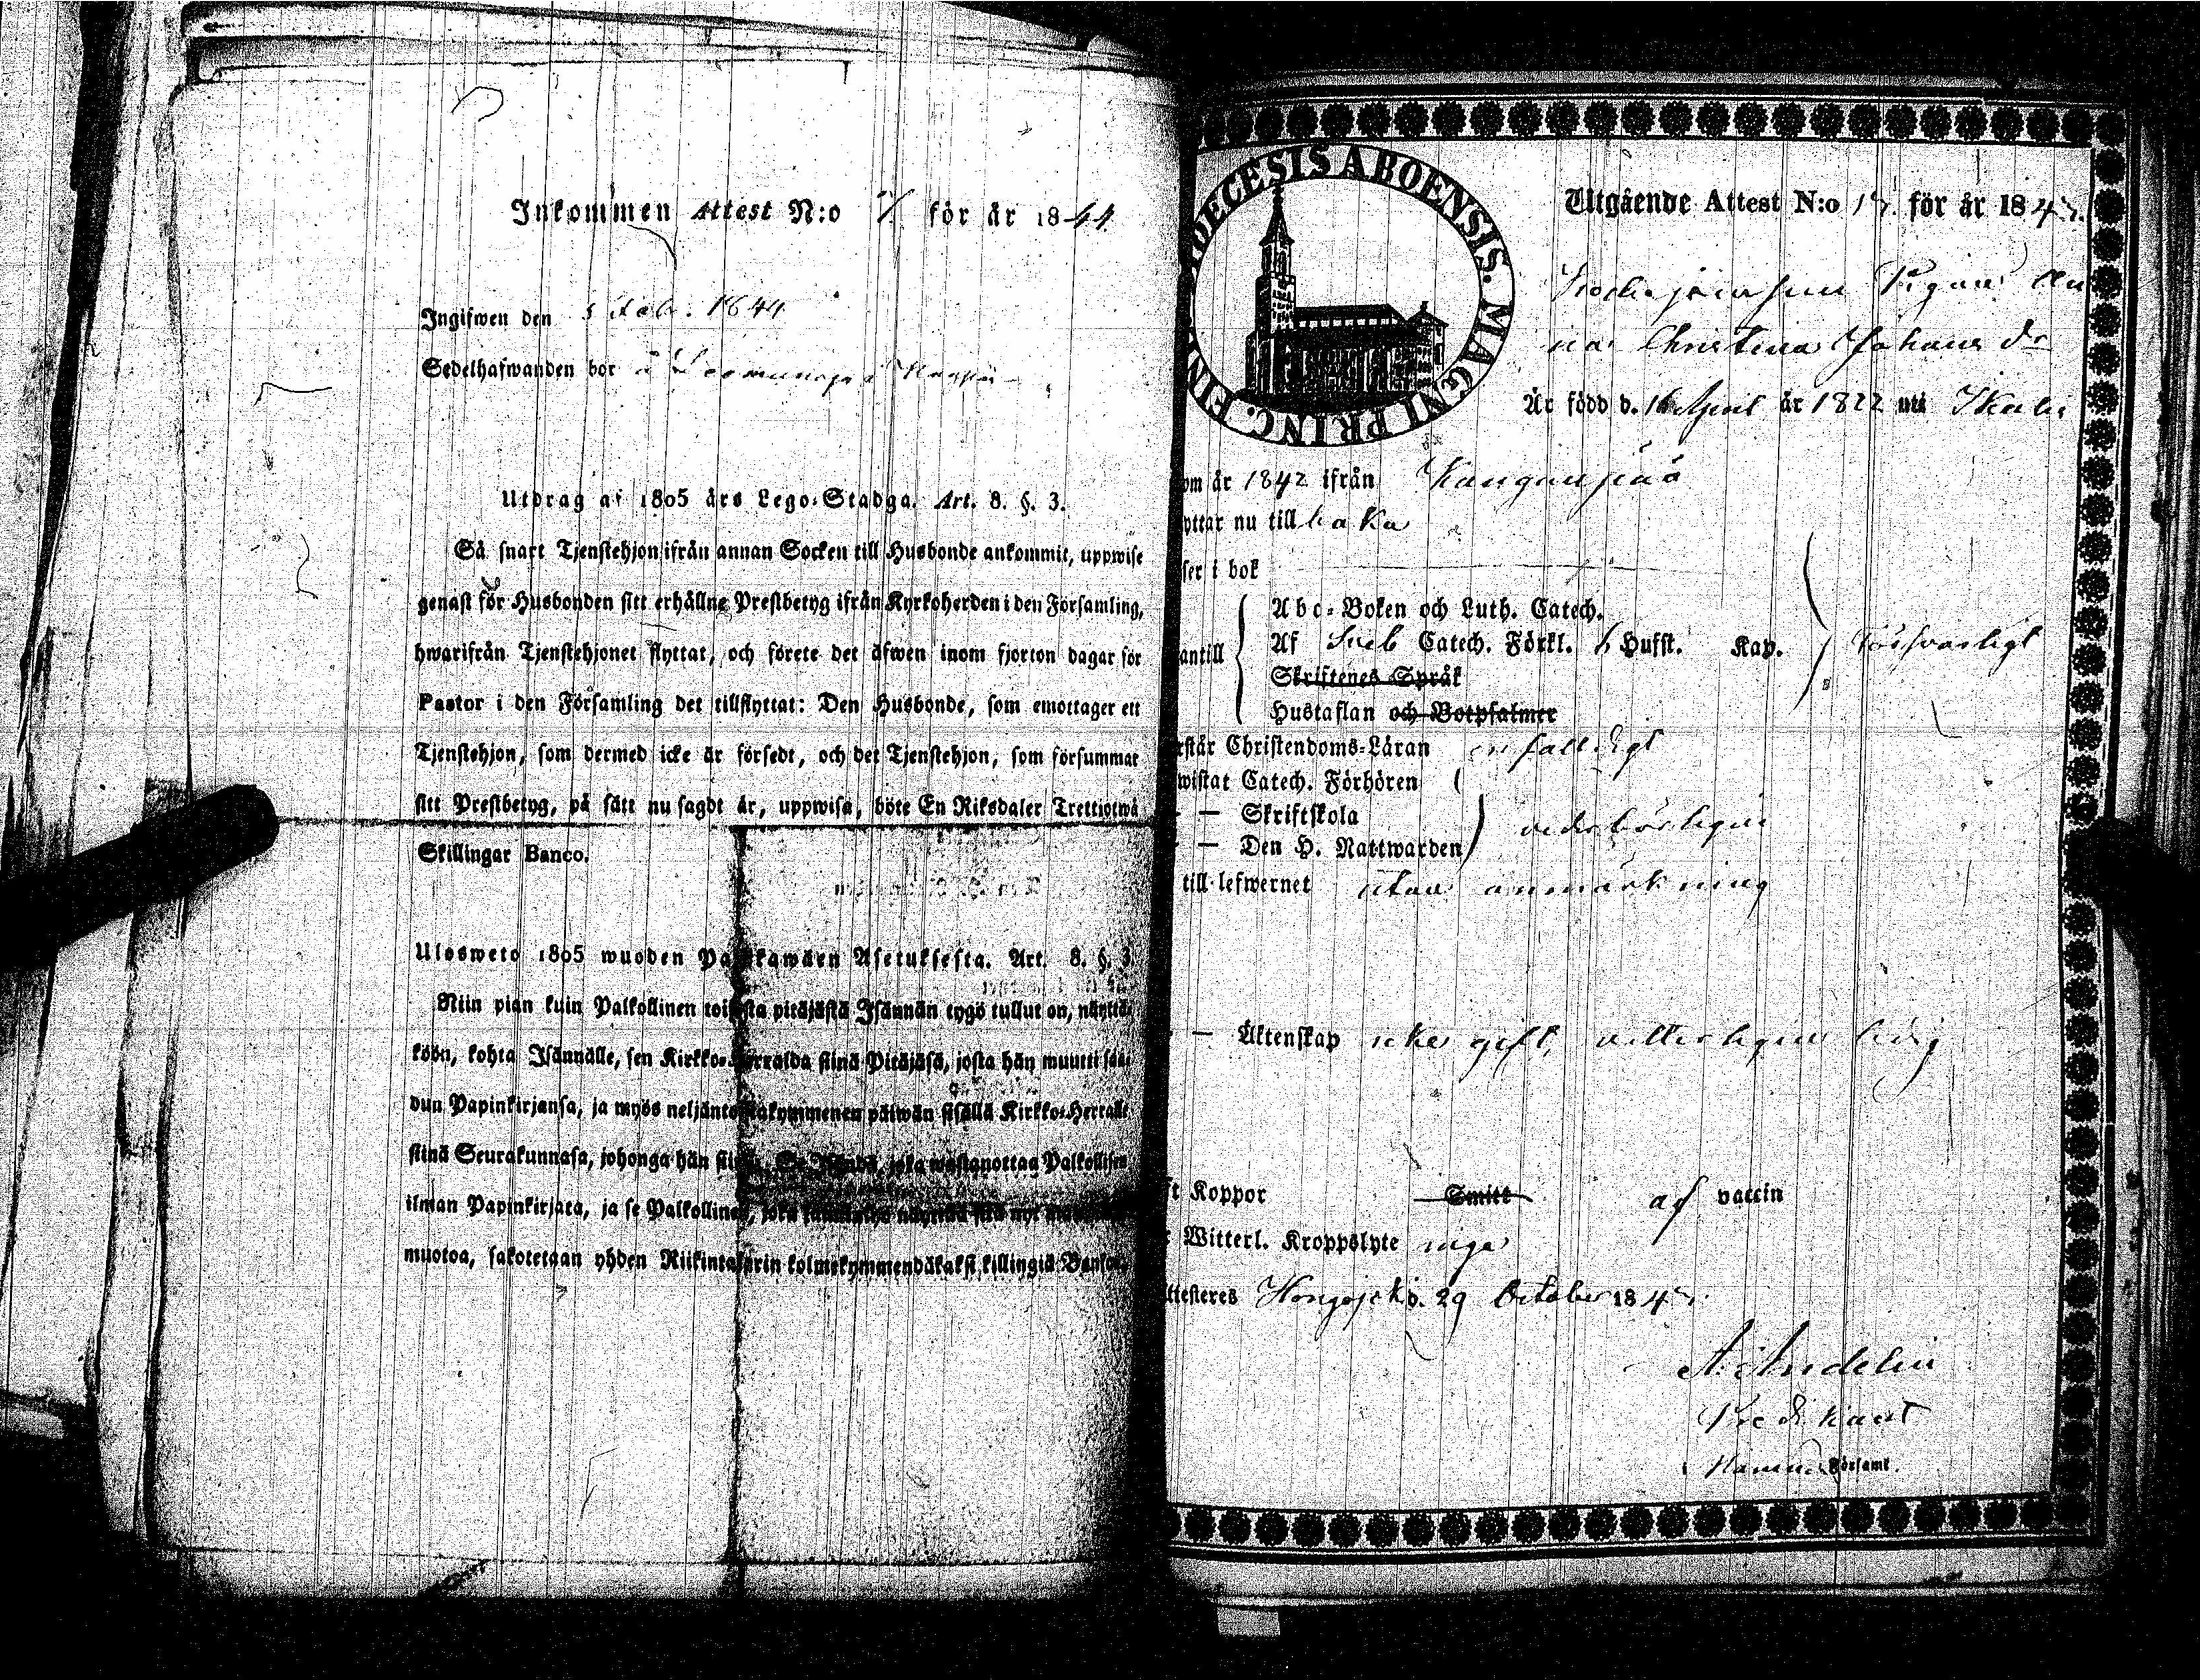 Inkommen Attest N:o för år 1844.
Ingifwen den 5 Feb. 1844
Sedelhafwanden bor å
Utdrag af 1805 års Lego-Stadga. Art. 8. §. 3.
Så snart Tjenstehjon ifrån annan Socken till Husbonde ankommit, uppwise
genast för Husbonden sitt erhållne Prestbetyg ifrån Kyrkoherden i den Församling,
hwarifrån Tjenstehjonet flyttat, och förete det äfwen inom fjorton dagar för
Pastor i den Församling det tillflyttat: Den Husbonde, som emottager ett
Tjenstehjon, som dermed icke är försedt, och det Tjenstehjon, som försummar
sitt Prestbetyg, på sätt nu sagdt är, uppwisa, böte En Riksdaler Trettiotwå
Skillingar Banco.
Ulosweto 1805 wuoden Asetuksesta. Art. 8. §. 3.
Niin pian kuin Palkollinen toisesta pitäjästä Isännän tygö tullut on, näyttä-
köön, kohta Isännälle, sen Kirkko-Herralda siinä Pitäjäsä, josta hän muutti saa-
dun Papinkirjansa, ja myös neljäntoistakymmenen päiwän sisällä Kirkko-Herralle
siinä Seurakunnasa, johonga hän joka wastanottaa Palkollisen
ilman Papinkirjata, ja se Palkollinen, joka
muotoa, sakotetaan yhden Riikintalarin kolmekymmendäkaksi killingiä Bancosa.
DIŒCESIS ABOENSIS. MAGNI PRINC. FIN
Utgående Attest N:o för år 184
Pigan An
na Christina Johans dr
Är född d. 16 April år 1822 uti Ikalis
om år 1842 ifrån Kangunjänä
yttar nu tillbaka
ser i bok
Abc-Boken och Luth. Catech.
antill Af Sveb Catech. Förkl. 6 Hufst. Kap. försvarligt
Skriftenes Språk
Hustaflan och Botpsalmer
rstår Christendoms-Läran enfalldigt
wistat Catech. Förhören
— Skriftskola
— Den H. Nattwarden vederbörligen
till lefwernet utan anmärkning
— Äktenskap icke gift, vitterligen ledig
ft Koppor Smitt af vaccin
Witterl. Kroppslyte inga
ttesteres Hongojoki d. 29 October 184
A. Andelin
Predikant
i Församl.